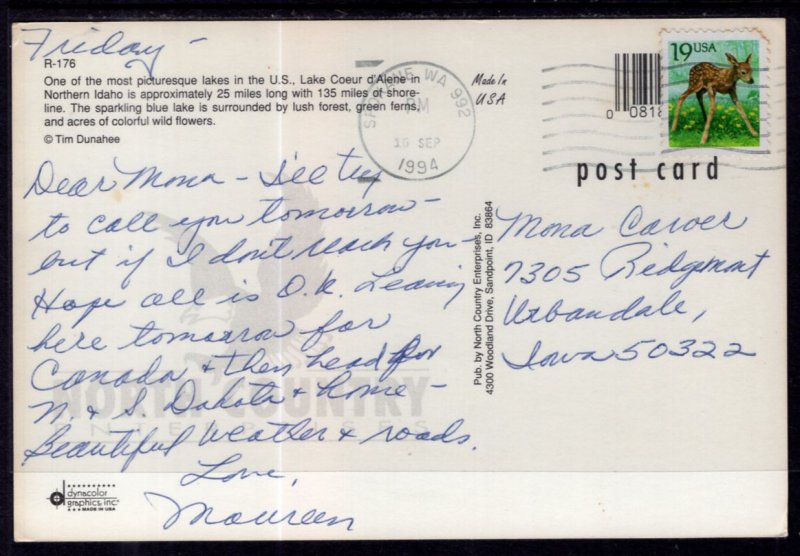 Friday -
R-176
One of the most picturesque lakes in the U.S., Lake Coeur d'Alene in
Northern Idaho is approximately 25 miles long with 135 miles of shore-
line. The sparkling blue lake is surrounded by lush forest, green ferns,
and acres of colorful wild flowers.
© Tim Dunahee
SPOKANE WA 992
PM
16 SEP
1994
Made In
USA
0 0818
19 USA
post card
Dear Mona - I'll try
to call you tomorrow -
but if I don't reach you -
Hope all is O.K. Leaving
here tomorrow for
Canada & then head for
N. & S. Dakota & home -
Beautiful weather & roads.
Love,
Maureen
NORTH COUNTRY
ENTERPRISES
Pub. by North Country Enterprises, Inc.
4300 Woodland Drive, Sandpoint, ID 83864
Mona Carver
7305 Ridgemont
Urbandale,
Iowa 50322
dynacolor
graphics, inc.
MADE IN USA